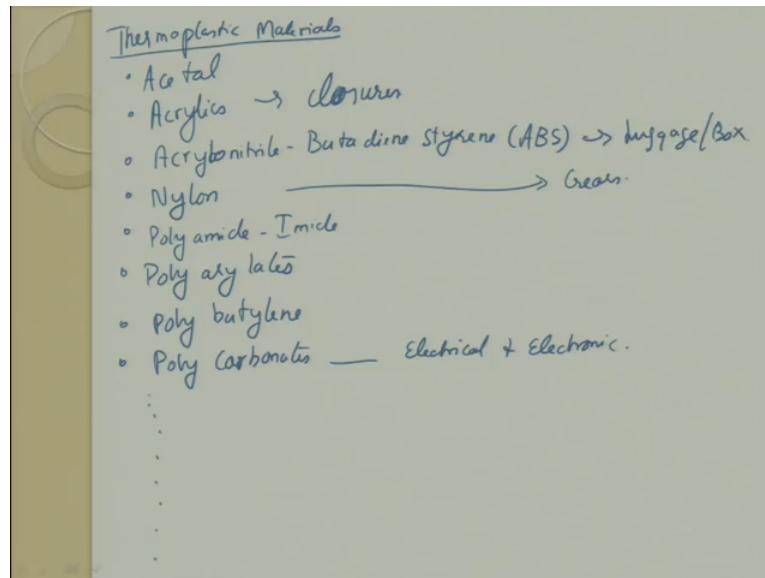 Thermoplastic Materials
• Acetal
• Acrylics → closures
• Acrylonitrile - Butadiene styrene (ABS) → luggage/Box.
• Nylon → Gears.
• Polyamide - Imide
• Poly arylates
• Poly butylene
• Poly Carbonates — Electrical & Electronic.